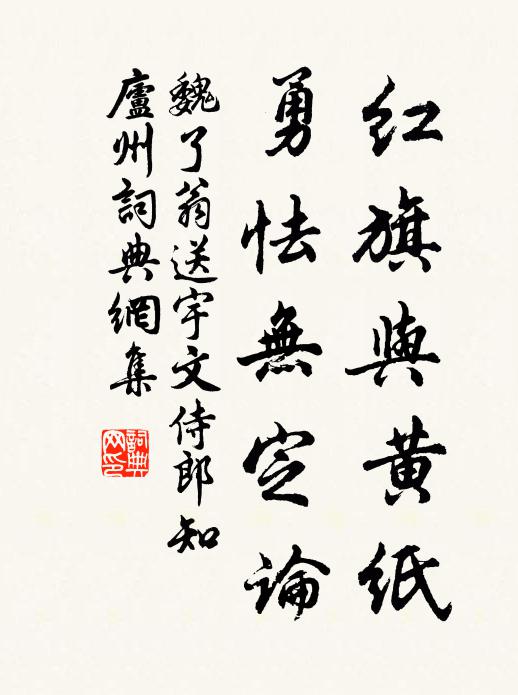 红旗與黄紙
勇怯無定論
魏了翁送宇文侍郎知
廬州詞典網集
詞典
网印